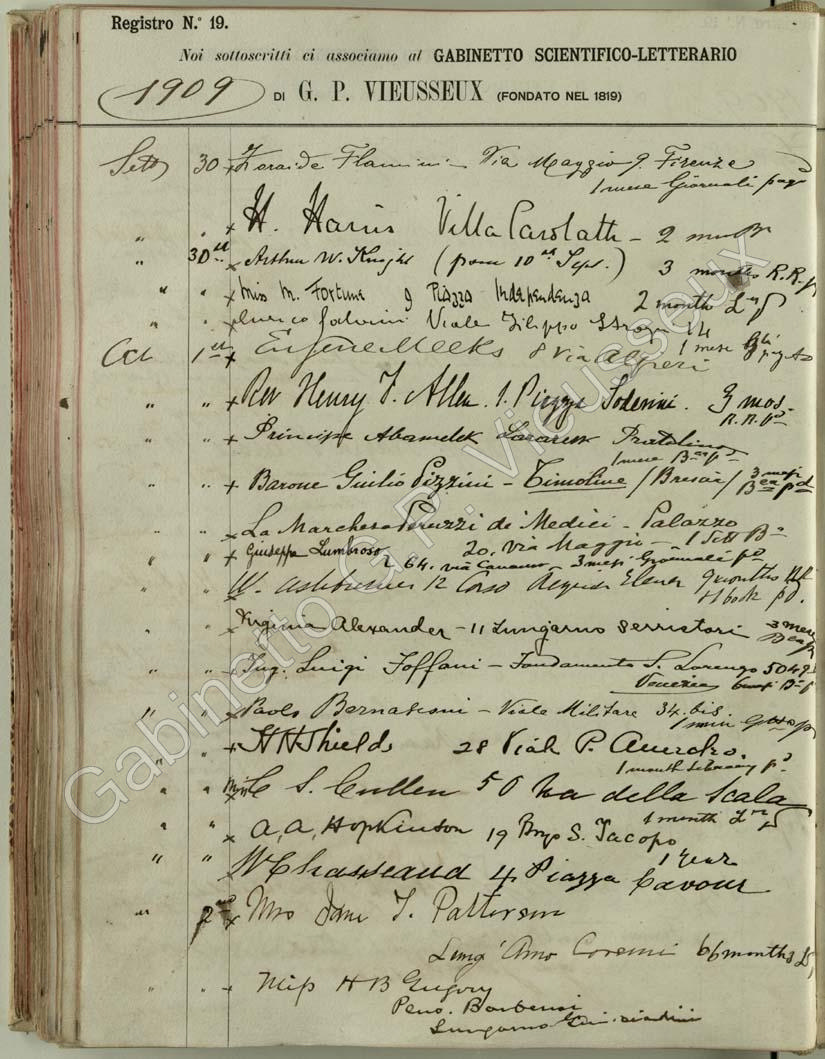 Registro N.° 19.
Noi sottoscritti ci associamo al GABINETTO SCIENTIFICO-LETTERARIO
1909 DI G. P. VIEUSSEUX (FONDATO NEL 1819)
30 Flamini - Via Maggio 9. Firenze
1 mese Giornali
" " H. Villa Carolath - 2
" 30 Arthur W. Knight (from 10th Sept.) 3 months R.R.
" " Miss M. Fortune 9 Piazza Independenza 2 month
" Enrico Salvini Viale Filippo Strozzi 14
1 mese
Oct 1st Eugene Meeks 8 Via Alfieri
" " Rev Henry J. Allen. 1. Piazza Soderini. 3 mos.
" " Principe Abamelek Lazarew Pratolino
1 mese
" " Barone Giulio Pizzini - Timoline /Brescia/ 3 mesi
" La Marchesa Peruzzi de' Medici - Palazzo
20. Via Maggio - 1
" " Giuseppe Lumbroso 64. via Cavour - 3 mesi Giornali
" W. 12 Corso Regina Elena 9 months
" " Virginia Alexander - 11 Lungarno Serristori 3 mesi
" " Ing. Luigi Toffani - Fondamenta S. Lorenzo
Venezia 6 mesi
" " Paolo Bernasconi - Viale Militare 34. bis.
" " H H Shields 28 Viale P.
1 month
" " C. S. Cullen 50 Via della Scala
1 month
" " A. A. Hopkinson 19 Borgo S. Jacopo
1 Year
" " W Chasseaud 4 Piazza Cavour
" 2nd Mrs Jane J. Patterson
Lung'Arno Corsini months
" " Miss H B Gregory
Pens. Barbensi
Lungarno Guicciardini
Gabinetto G. P. Vieusseux